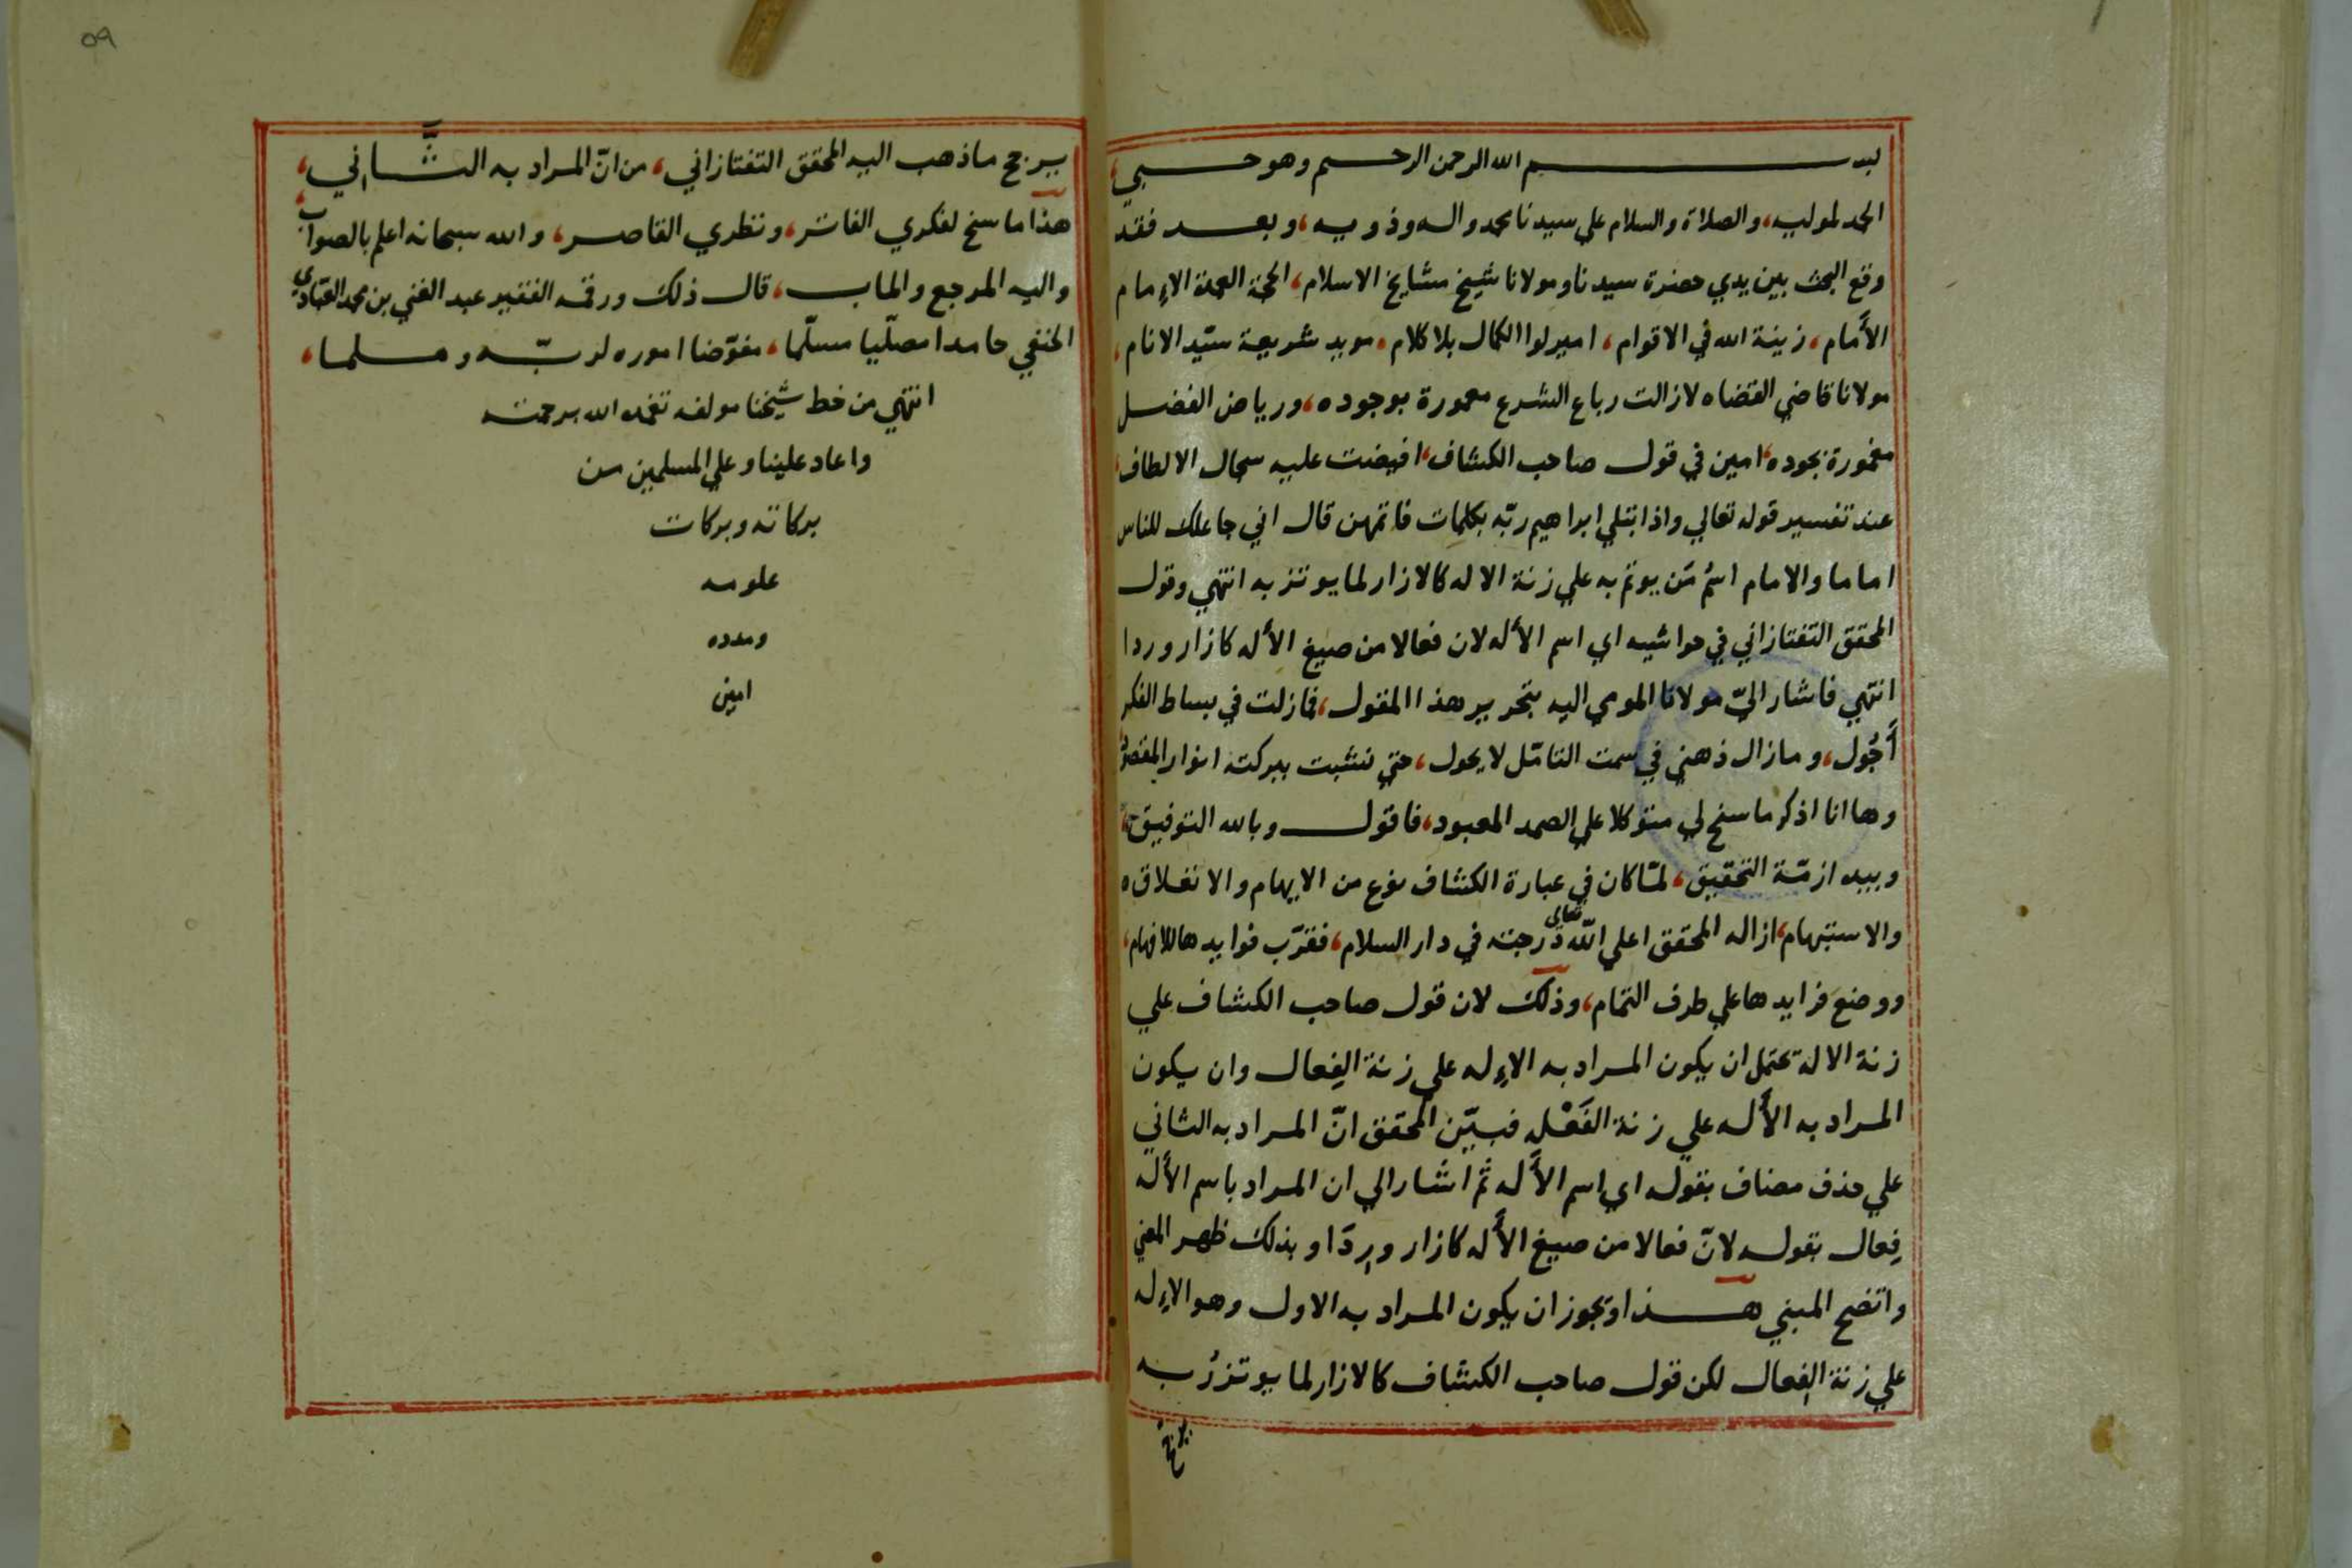 بسم الله الرحمن الرحيم وهو حسبي،
الحمد لموليه، والصلاة والسلام علي سيدنا محمد واله وذويه، وبعد فقد
وقع البحث بين يدي حضرة سيدنا ومولانا شيخ مشايخ الاسلام، الحجة العمدة الإمام
الأمام، زينة الله في الاقوام، امير لوا الكمال بلا كلام، مويد شريعة سيّد الانام،
مولانا قاضي القضاه لا زالت رباع الشرع معمورة بوجوده، ورياض الفضل
مغمورة بجوده، امين في قول صاحب الكشاف، افيضت عليه سجال الالطاف،
عند تفسير قوله تعالي واذ ابتلي ابراهيم ربّه بكلمات فاتمهن قال اني جاعلك للناس
اماما والامام اسمُ مَن يوتمّ به علي زنة الاله كالازار لما يوتزر به انتهي وقول
المحقق التفتازاني في حواشيه اي اسم الأله لان فعالا من صيغ الأله كازار وردا
انتهي فاشار اليّ مولانا المومي اليه بتحرير هذا المقول، فما زلت في بساط الفكر
أَجُول، وما زال ذهني في سمت التامّل لا يحول، حتي تشبثت ببركته انوار المقصود
وها انا اذكر ما سنح لي متوكلا علي الصمد المعبود، فاقول وبالله التوفيق،
وبيده ازمّة التحقيق، لمّا كان في عبارة الكشاف نوع من الايهام والانغلاق ه
والاستبهام، ازاله المحقق اعلي الله تعالى درجته في دار السلام، فقرّب فوايدها للافهام،
ووضع فرايدها علي طرف الثمام، وذلك لان قول صاحب الكشاف علي
زنة الالة يحتمل ان يكون المراد به الاِله علي زنة الفِعال وان يكون
المراد به الأَله علي زنة الفَعْله فبيّن المحقق انّ المراد به الثاني
علي حذف مضاف بقوله اي اسم الأله ثمّ اشار الي ان المراد باسم الأله
فِعال بقوله لانّ فعالا من صيغ الأَله كازار ورِدَا وبذلك ظهر المعني
واتضح المبني هذا ويجوز ان يكون المراد به الاول وهو الاِله
علي زنة الفِعال لكن قول صاحب الكشاف كالازار لما يوتزرُ به
يرجح
٥٩
يرجح ما ذهب اليه المحقق التفتازاني، من انّ المراد به الثَّاني،
هذا ما سنح لفكري الفاتر، ونظري القاصر، والله سبحانه اعلم بالصواب،
واليه المرجع والماب، قال ذلك ورقمه الفقير عبد الغني بن محمد العبّادي
الحنفي حامدا مصلّيا مسلّما، مفوّضا اموره لربّه ومسلما،
انتهي من خط شيخنا مولفه تغمده الله برحمته
واعاد علينا وعلي المسلمين من
بركاته وبركات
علومه
ومدده
امين